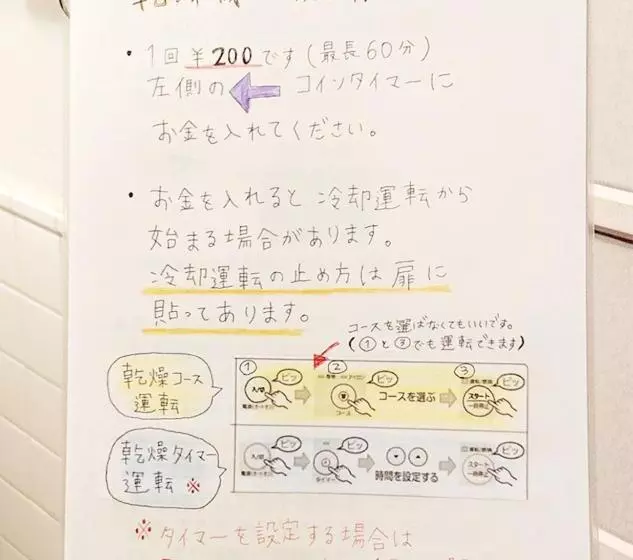 ・1回 ¥200です(最長60分)
左側の ← コインタイマーに
お金を入れてください。
・お金を入れると 冷却運転から
始まる場合があります。
冷却運転の止め方は 扉に
貼ってあります。
コースを選ばなくてもいいです。
(①と③でも運転できます)
乾燥コース
運転
① 入/切 ピッ
② ピッ コース
コースを選ぶ
③ ピッ スタート 一時停止
乾燥タイマー
運転 ※
入/切 ピッ
ピッ タイマー
時間を設定する
ピッ スタート 一時停止
※タイマーを設定する場合は